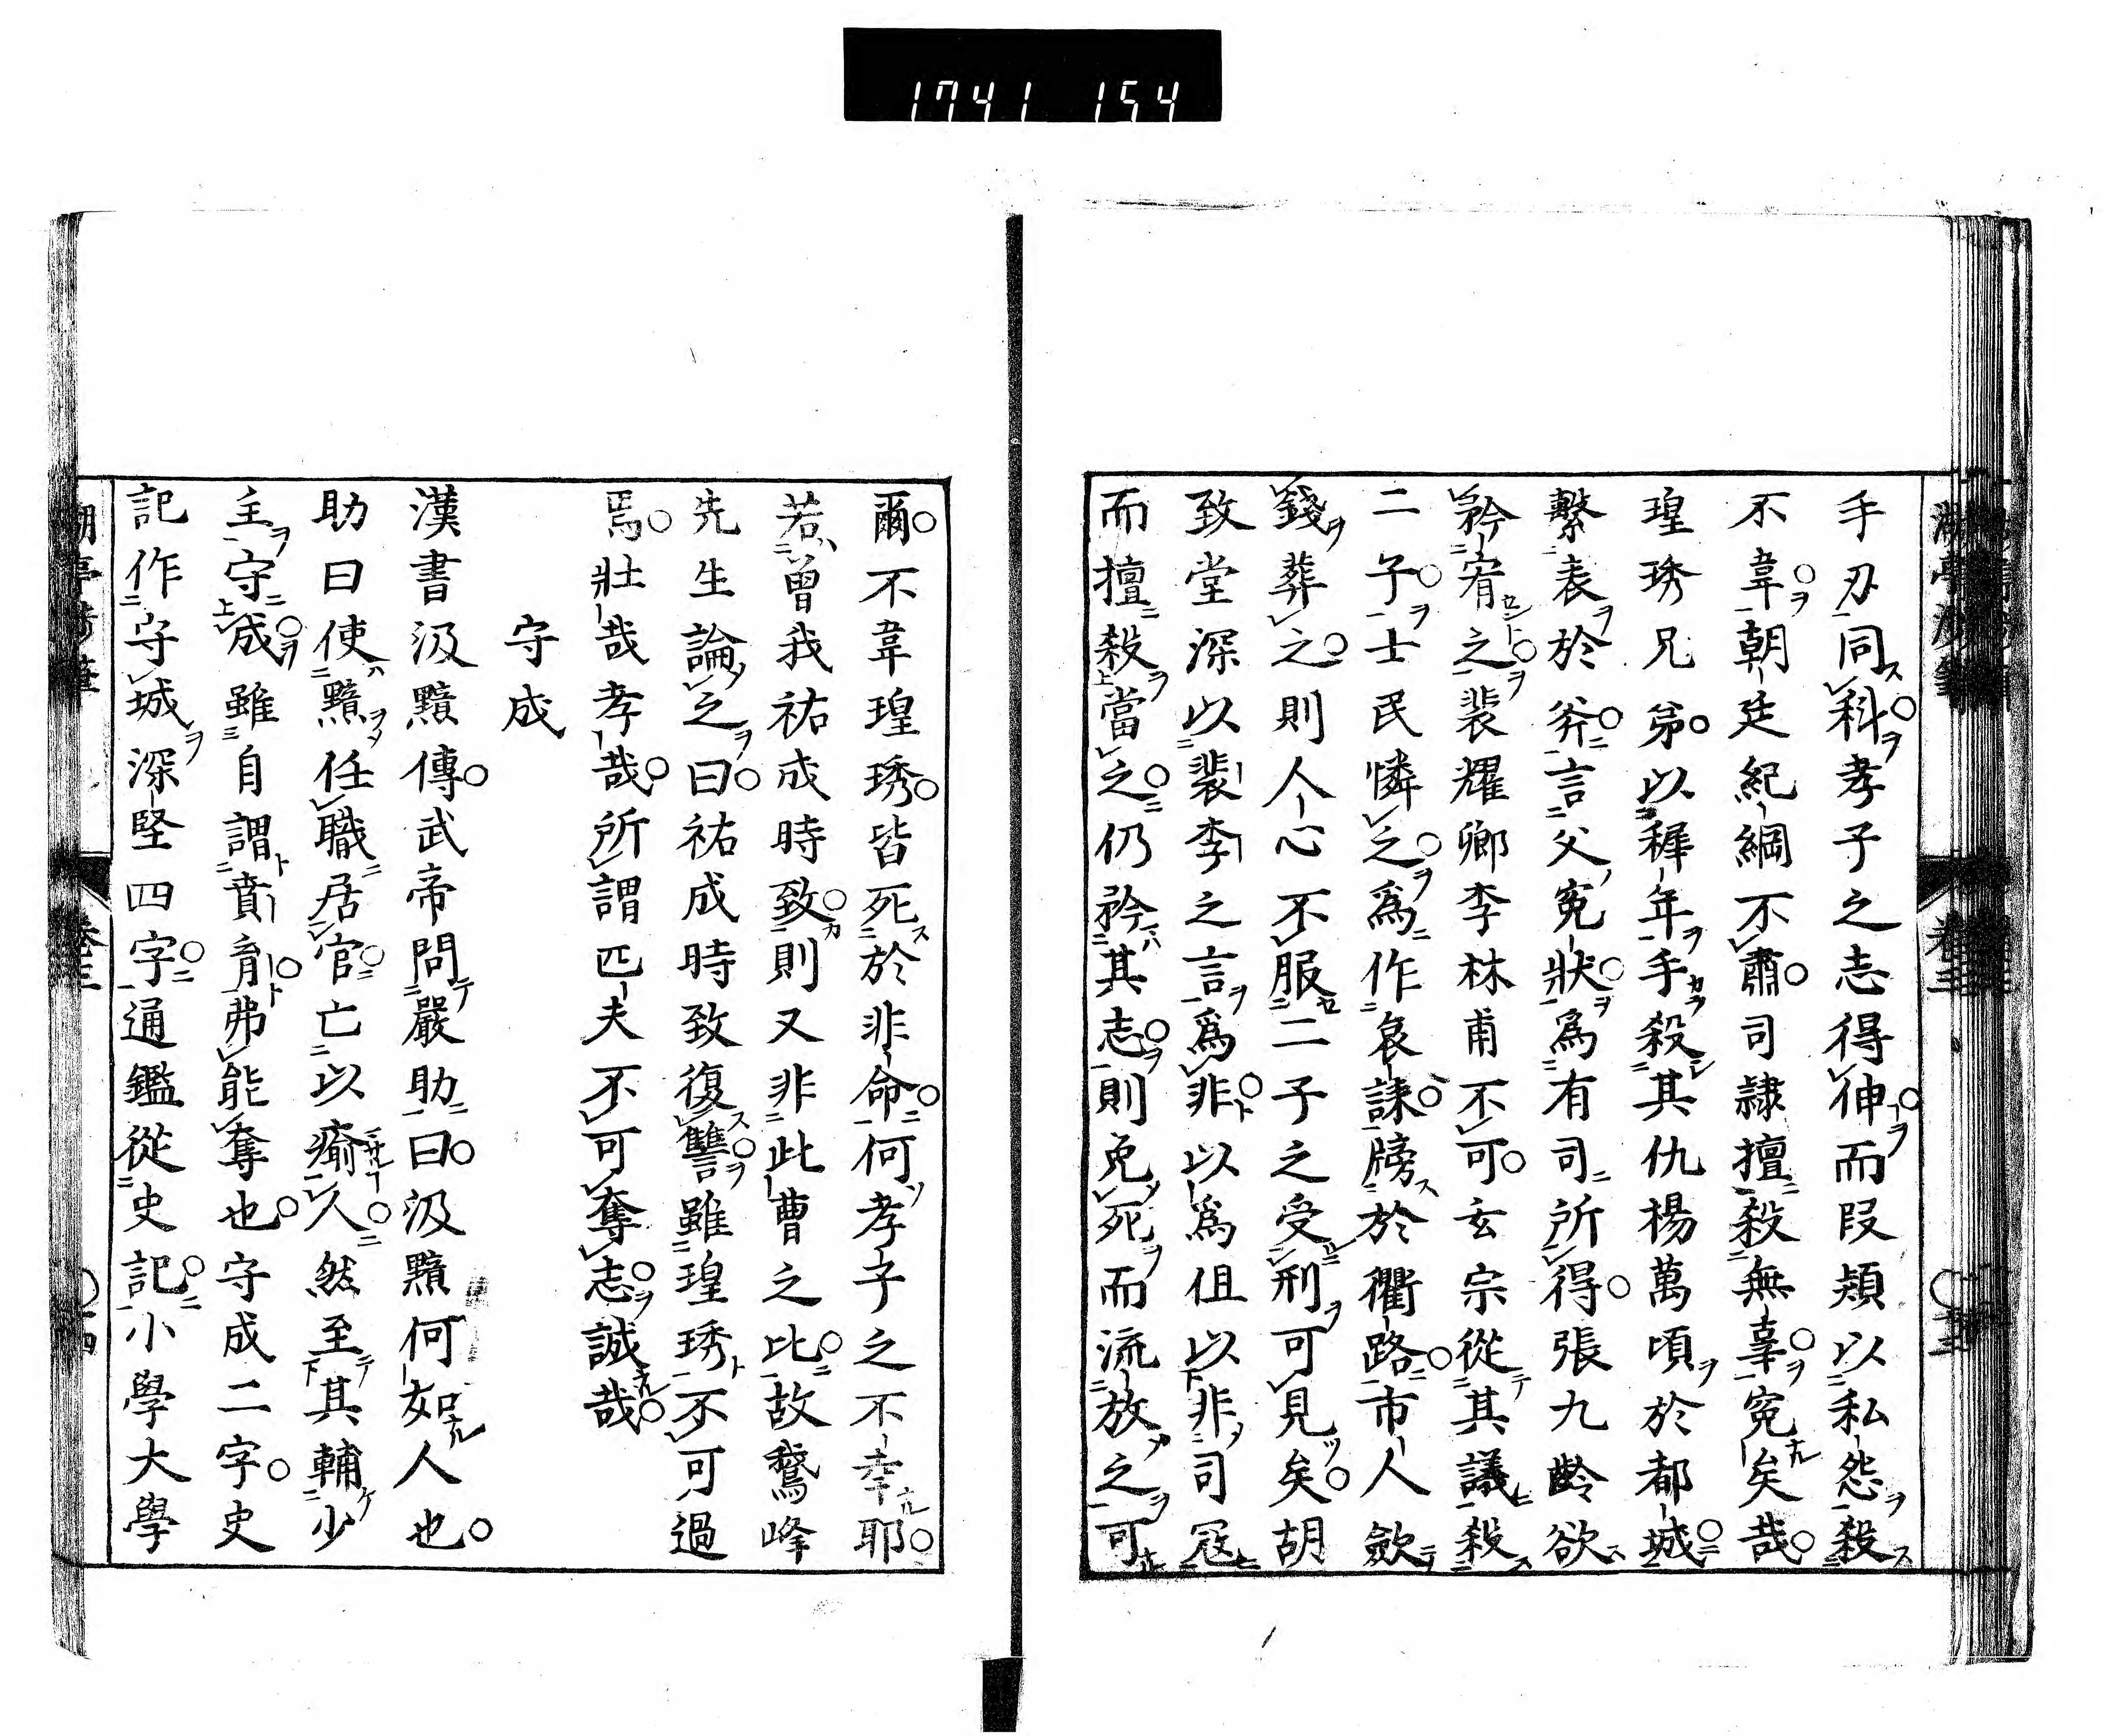 1741 154
手刃同科孝子之志得伸而叚頍以私怨殺
不韋朝廷紀綱不肅司隷擅殺無辜寃矣哉
瑝琇兄弟以穉年手殺其仇楊萬頃於都城
繋表於斧言父寃狀爲有司所得張九齡欲
矜宥之裴耀卿李林甫不可玄宗從其議殺
二子士民憐之爲作哀誄牓於衢路市人歛
錢葬之則人心不服二子之受刑可見矣胡
致堂深以裴李之言爲非以爲但以非司冦
而擅殺當之仍矜其志則免死而流放之可
爾不韋瑝琇皆死於非命何孝子之不幸耶
若曽我祐成時致則又非此曹之比故鵞峰
先生論之曰祐成時致復讐雖瑝琇不可過
焉壯哉孝哉所謂匹夫不可奪志誠哉
守成
漢書汲黯傳武帝問嚴助曰汲黯何如人也
助曰使黯任職居官亡以瘉人然至其輔少
主守成雖自謂賁育弗能奪也守成二字史
記作守城深堅四字通鑑從史記小學大學